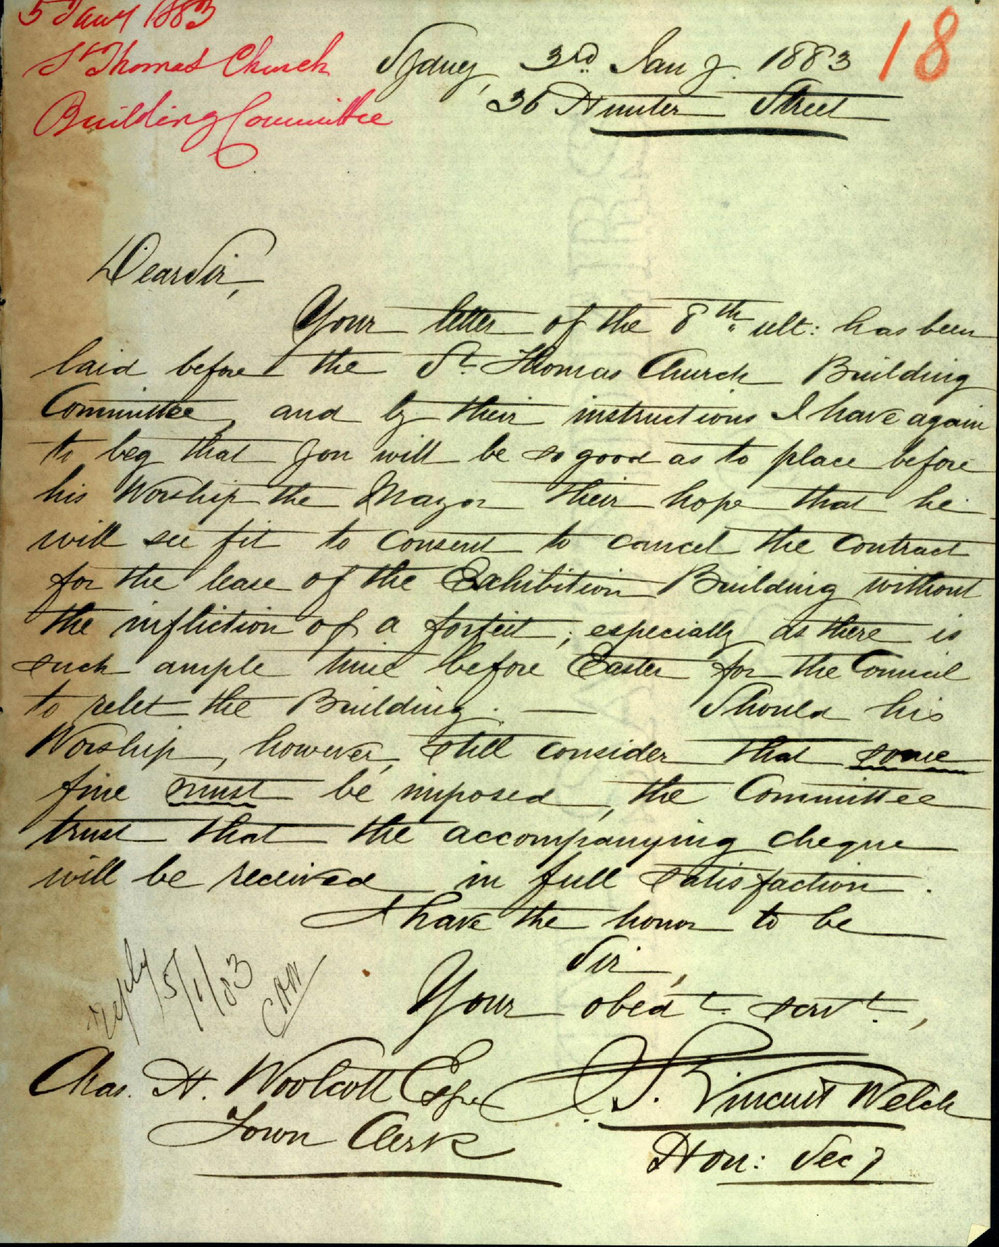 5 Jany 1883
St Thomas Church
Building Committee
18
Sydney, 3rd Jany. 1883
36 Hunter Street
Dear Sir,
Your letter of the 8th ult: has been
laid before the St. Thomas Church Building
Committee, and by their instructions I have again
to beg that you will be so good as to place before
his Worship the Mayor their hope that he
will see fit to consent to cancel the contract
for the lease of the Exhibition Building without
the infliction of a forfeit; especially as there is
such ample time before Easter for the Council
to relet the Building. — Should his
Worship, however, still consider that some
fine must be imposed, the Committee
trust that the accompanying cheque
will be received in full satisfaction.
I have the honor to be
Sir,
Your obedt. servt.,
reply 5/1/83
CHW
Chas. H. Woolcott Esqre
Town Clerk
J. S. Vincent Welch
Hon: Secy